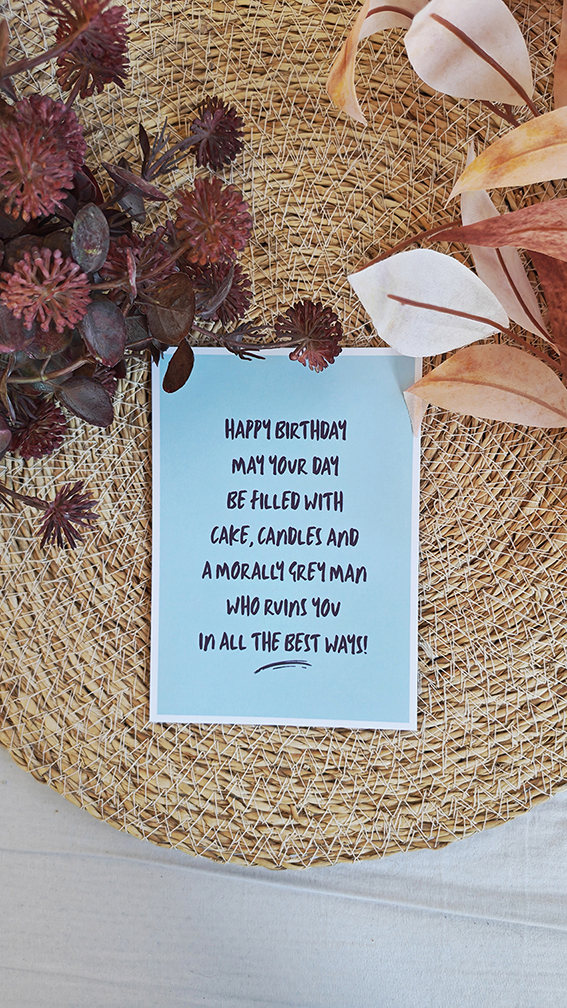 HAPPY BIRTHDAY
MAY YOUR DAY
BE FILLED WITH
CAKE, CANDLES AND
A MORALLY GREY MAN
WHO RUINS YOU
IN ALL THE BEST WAYS!